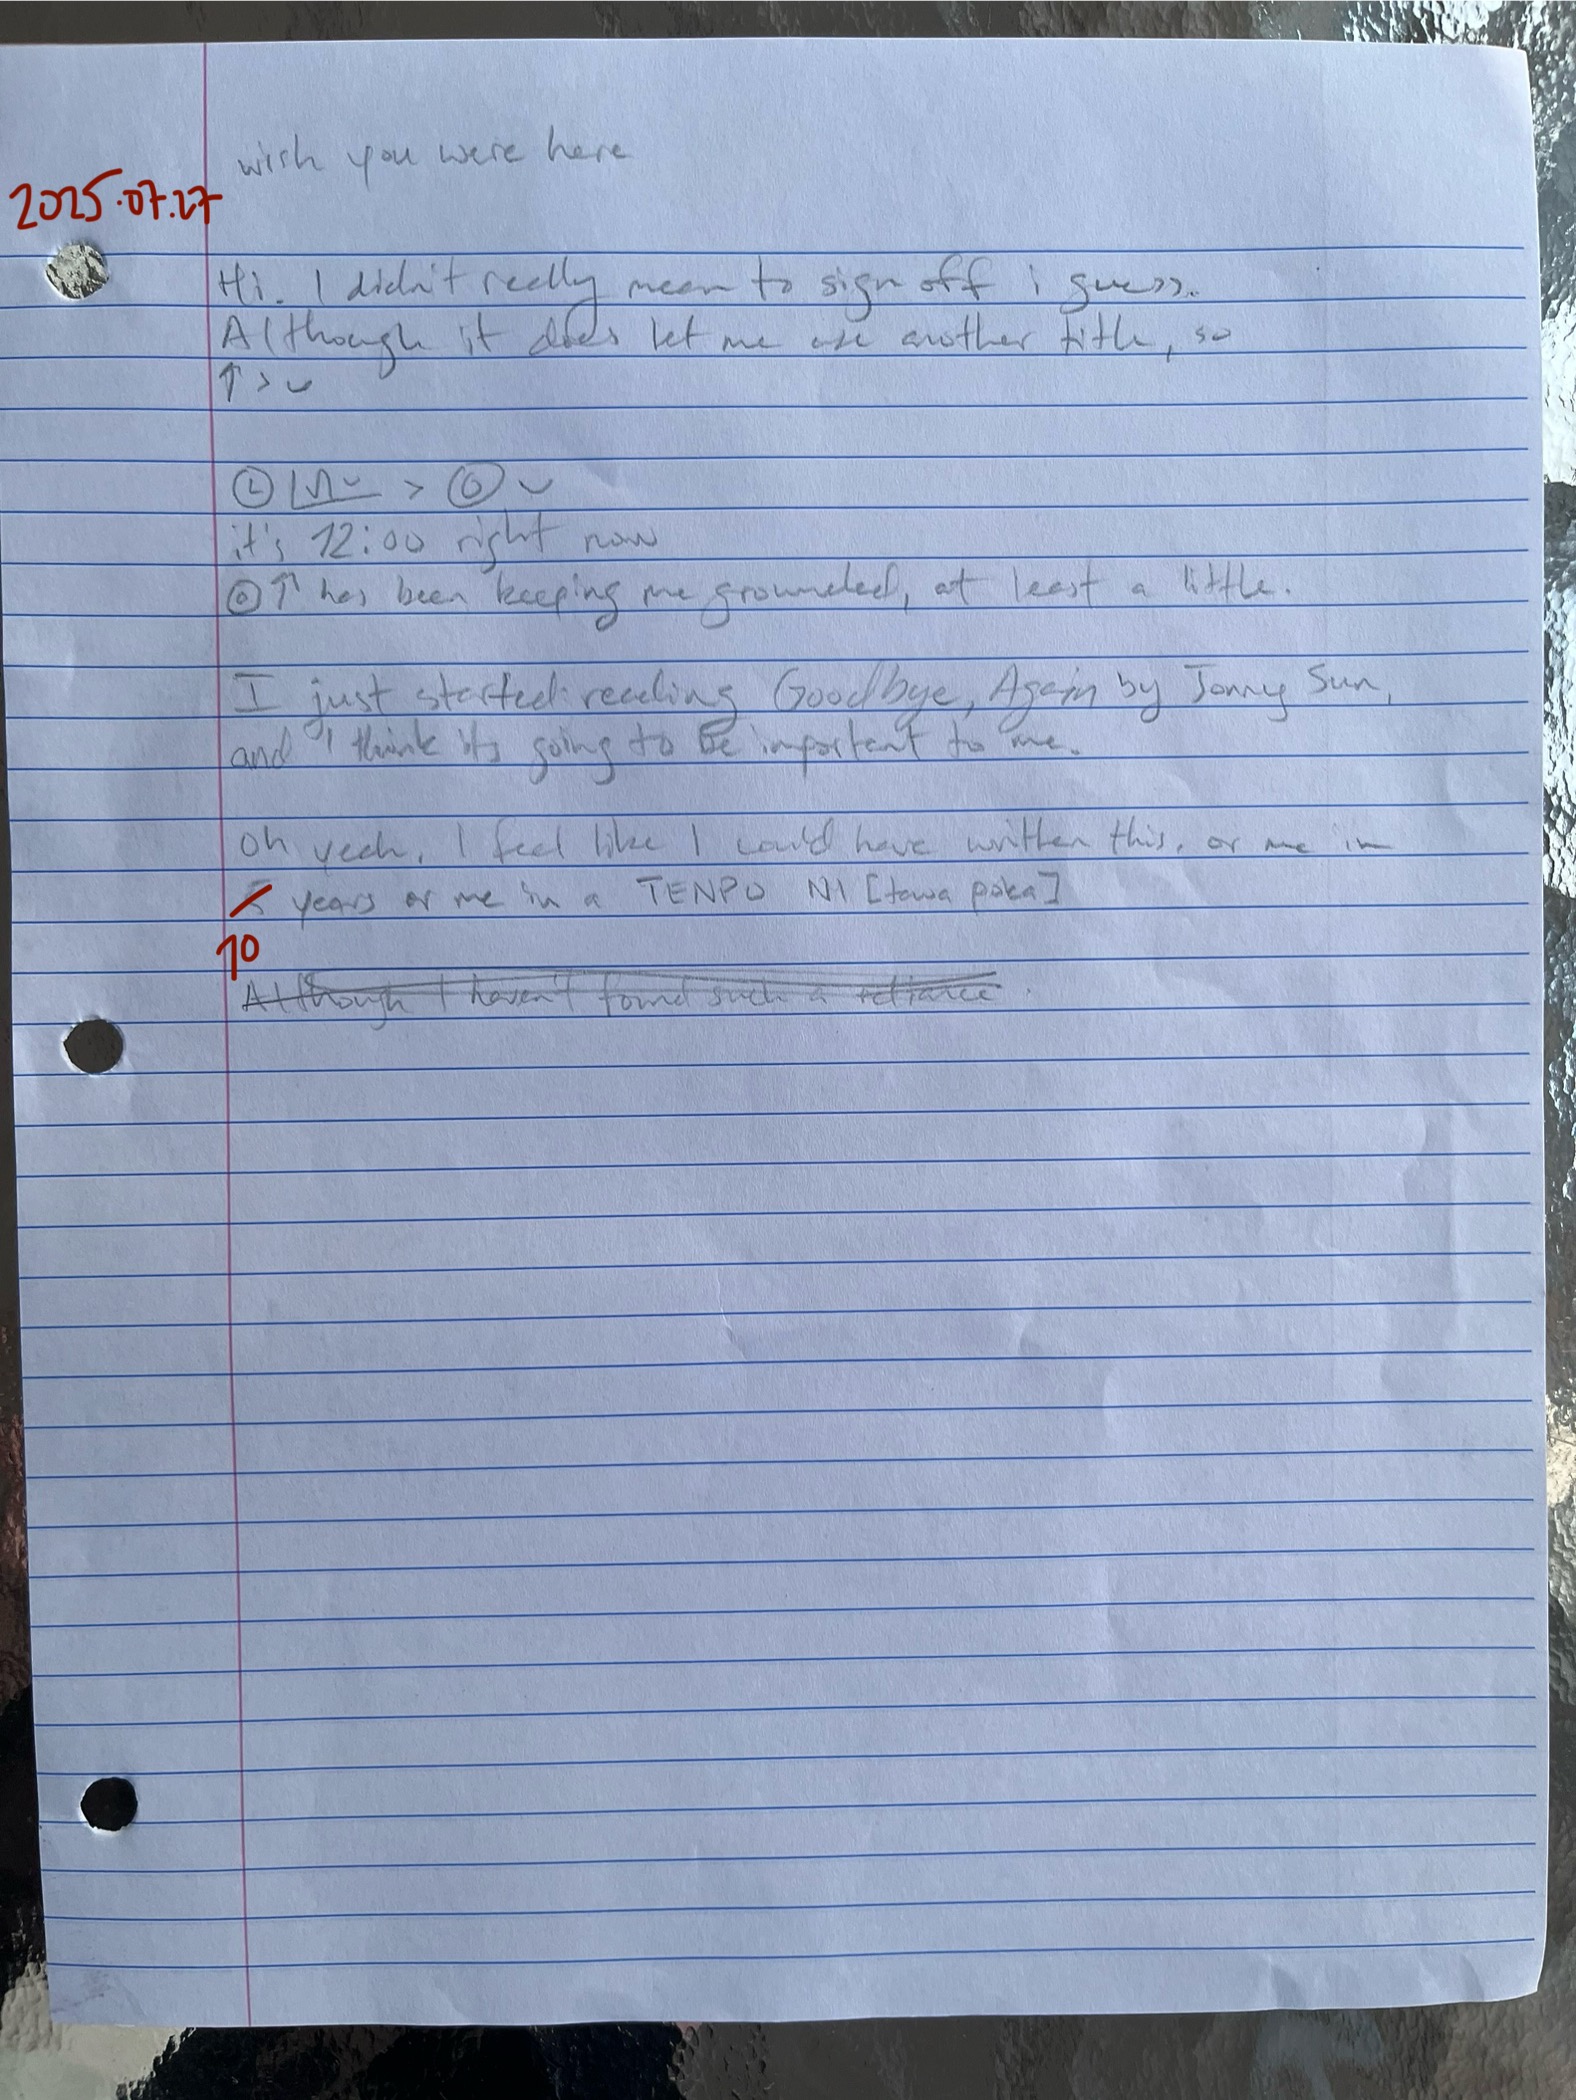 wish you were here
2025.07.27
Hi. I didn't really mean to sign off i guess.
Although it does let me use another title, so
↑ > ⌣
> ⌣
it's 12:00 right now
↑ has been keeping me grounded, at least a little.
I just started reading Goodbye, Again by Jonny Sun,
and I think its going to be important to me.
Oh yeah, I feel like I could have written this, or me in
5 years or me in a TENPO NI [tawa poka]
10
Although I haven't found such a reliance.